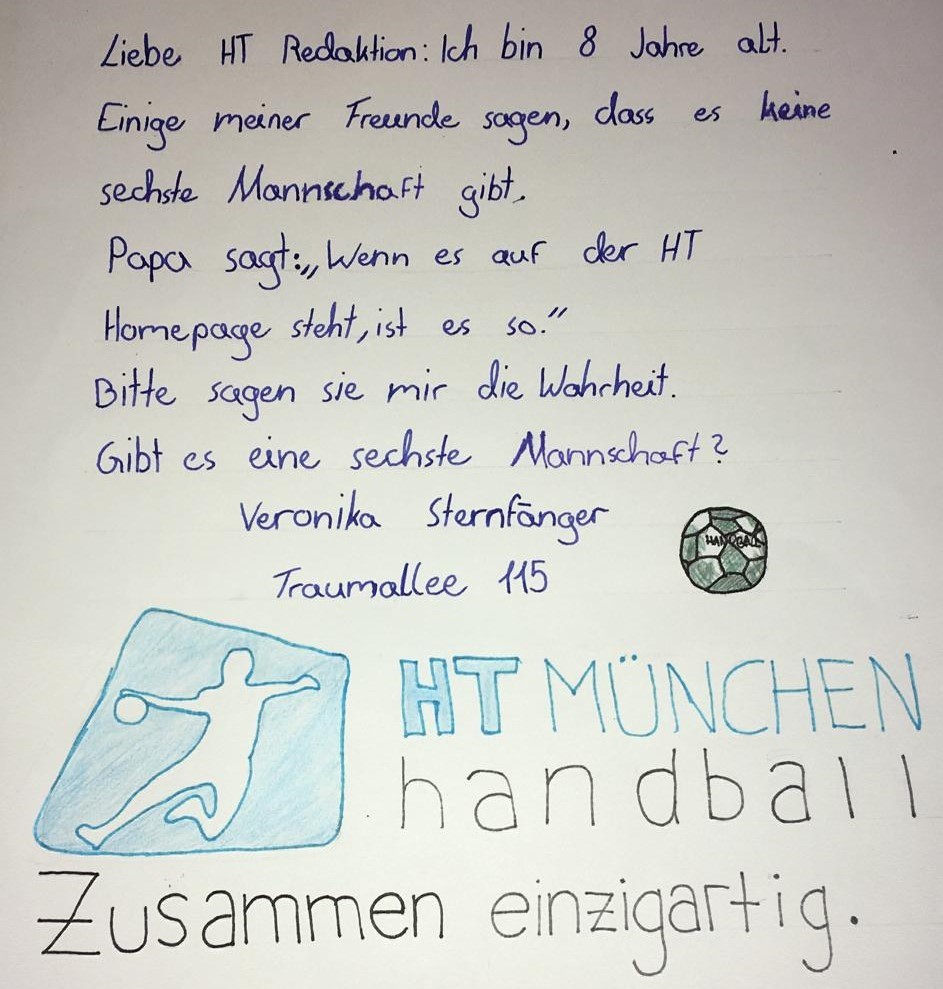 Liebe HT Redaktion: Ich bin 8 Jahre alt.
Einige meiner Freunde sagen, dass es keine
sechste Mannschaft gibt.
Papa sagt: „Wenn es auf der HT
Homepage steht, ist es so.“
Bitte sagen sie mir die Wahrheit.
Gibt es eine sechste Mannschaft?
Veronika Sternfänger
Traumallee 115
HANDBALL
HT MÜNCHEN
handball
Zusammen einzigartig.